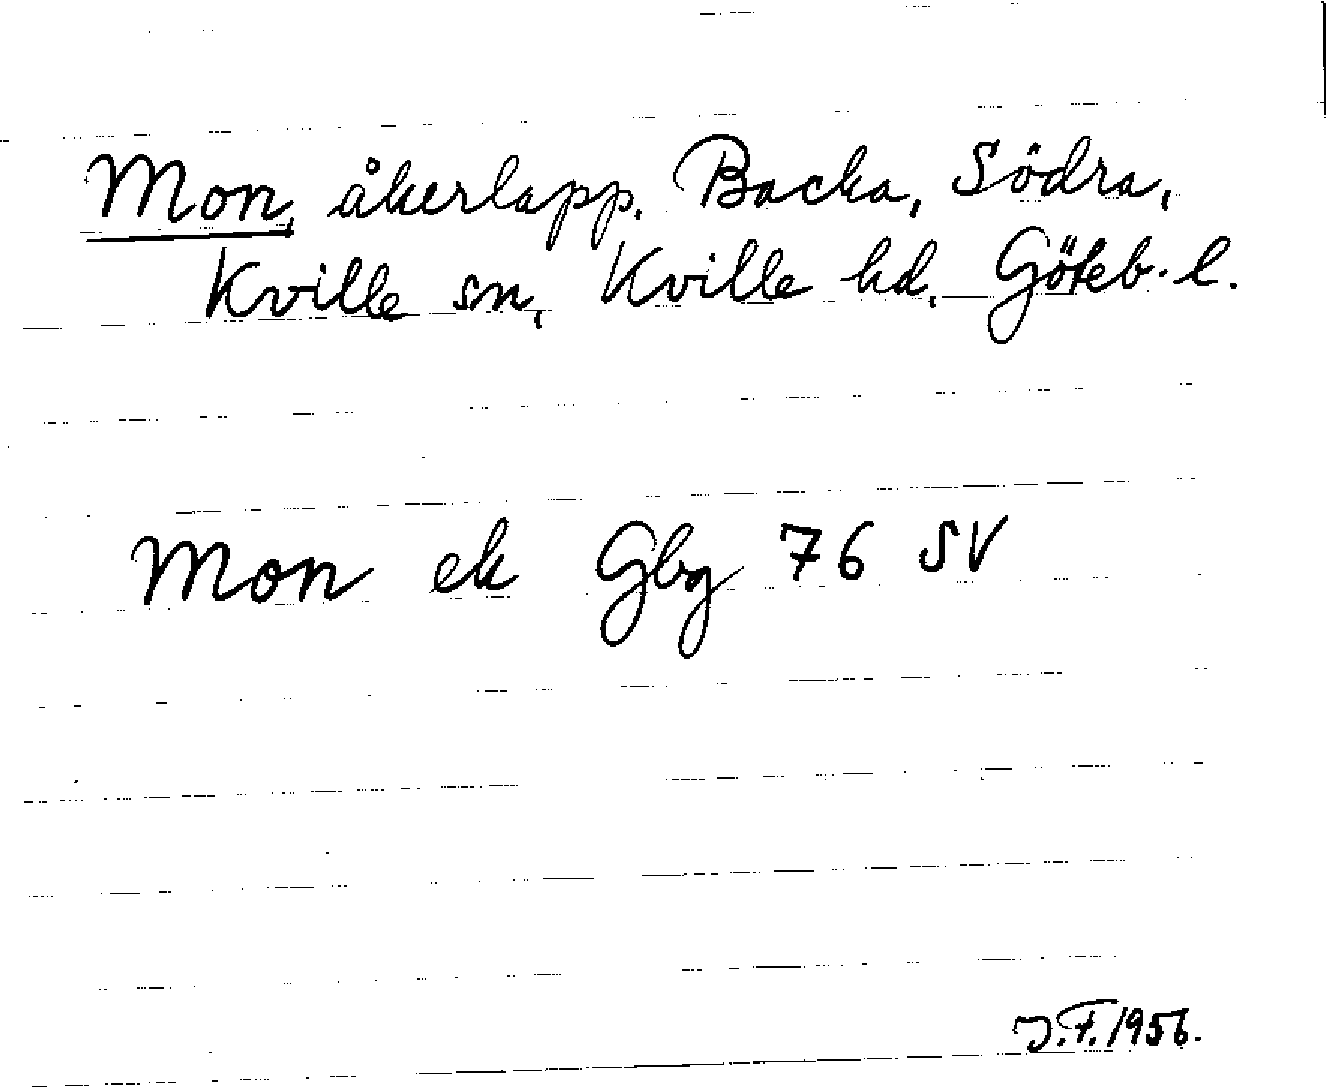 Mon, åkerlapp. Backa, Södra,
Kville sn, Kville hd, Göteb. l.
Mon ek Gbg 76 SV
J.F. 1956.